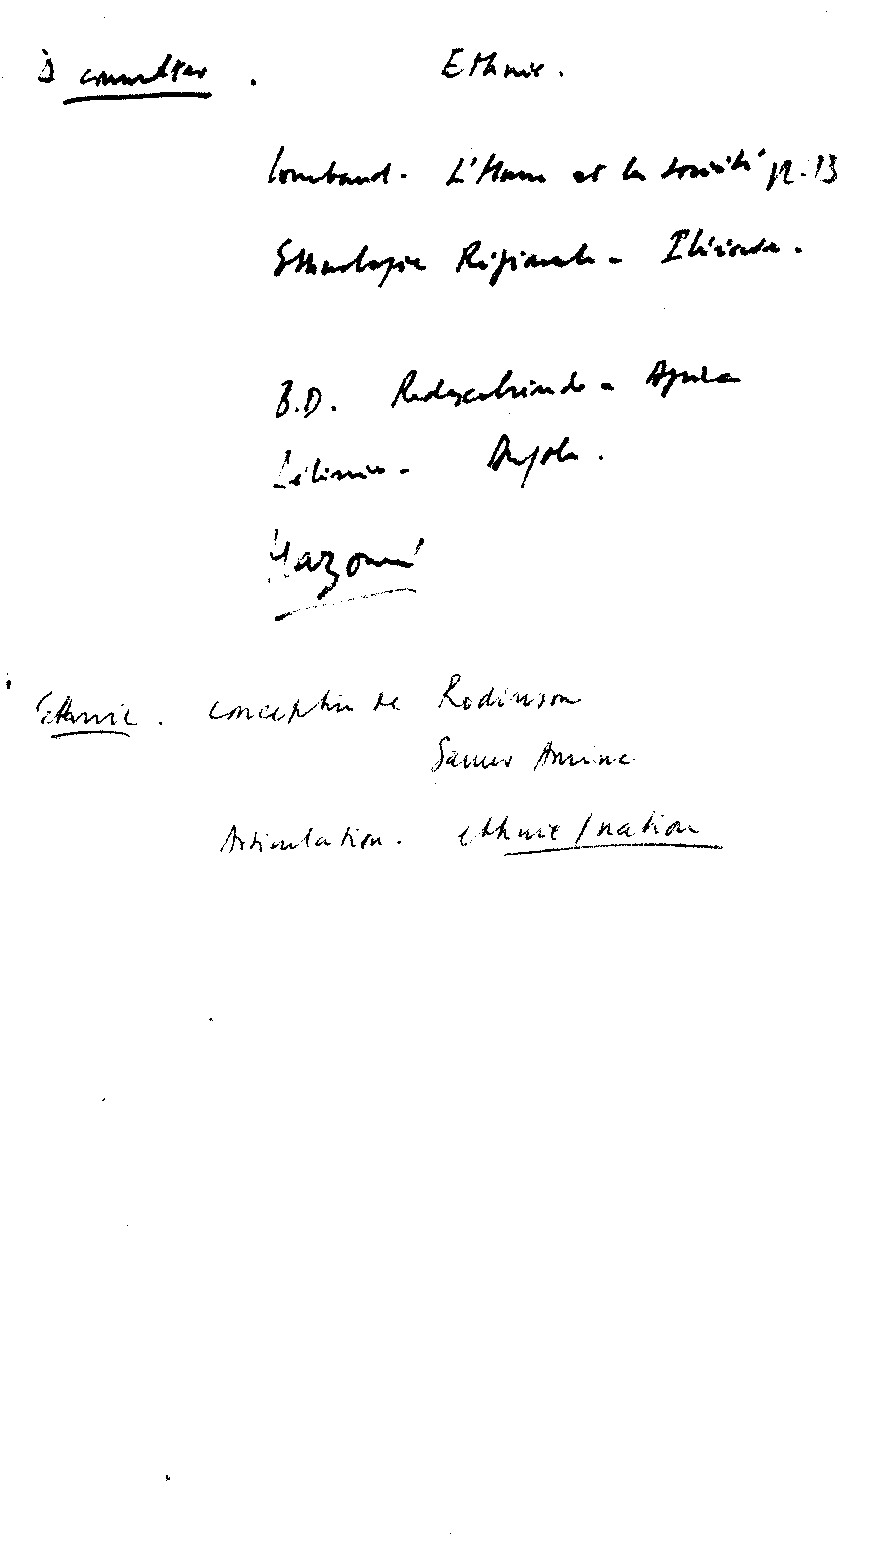 à consulter. Ethnie.
Lombard. L'Homme et la société p. 13
Ethnologie Régionale - Pléiade.
B.D. Redescobrindo - Africa
Angola.
Hazoumé
Ethnie. conception de Rodinson
Samir Amine
Articulation. ethnie/nation